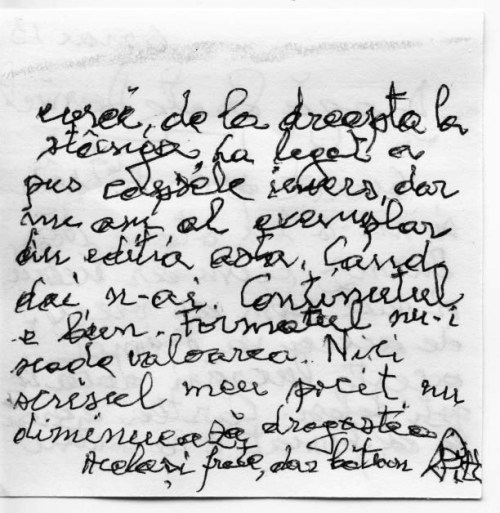 de la dreapta la
stânga. La legat a
pus coperțile invers, dar
nu am alt exemplar
din ediția asta. Când
dai, n-ai. Conținutul
e bun. Formatul nu-i
scade valoarea. Nici
scrisul meu pocit nu
diminuează dragostea
Același frate, dar bătrân